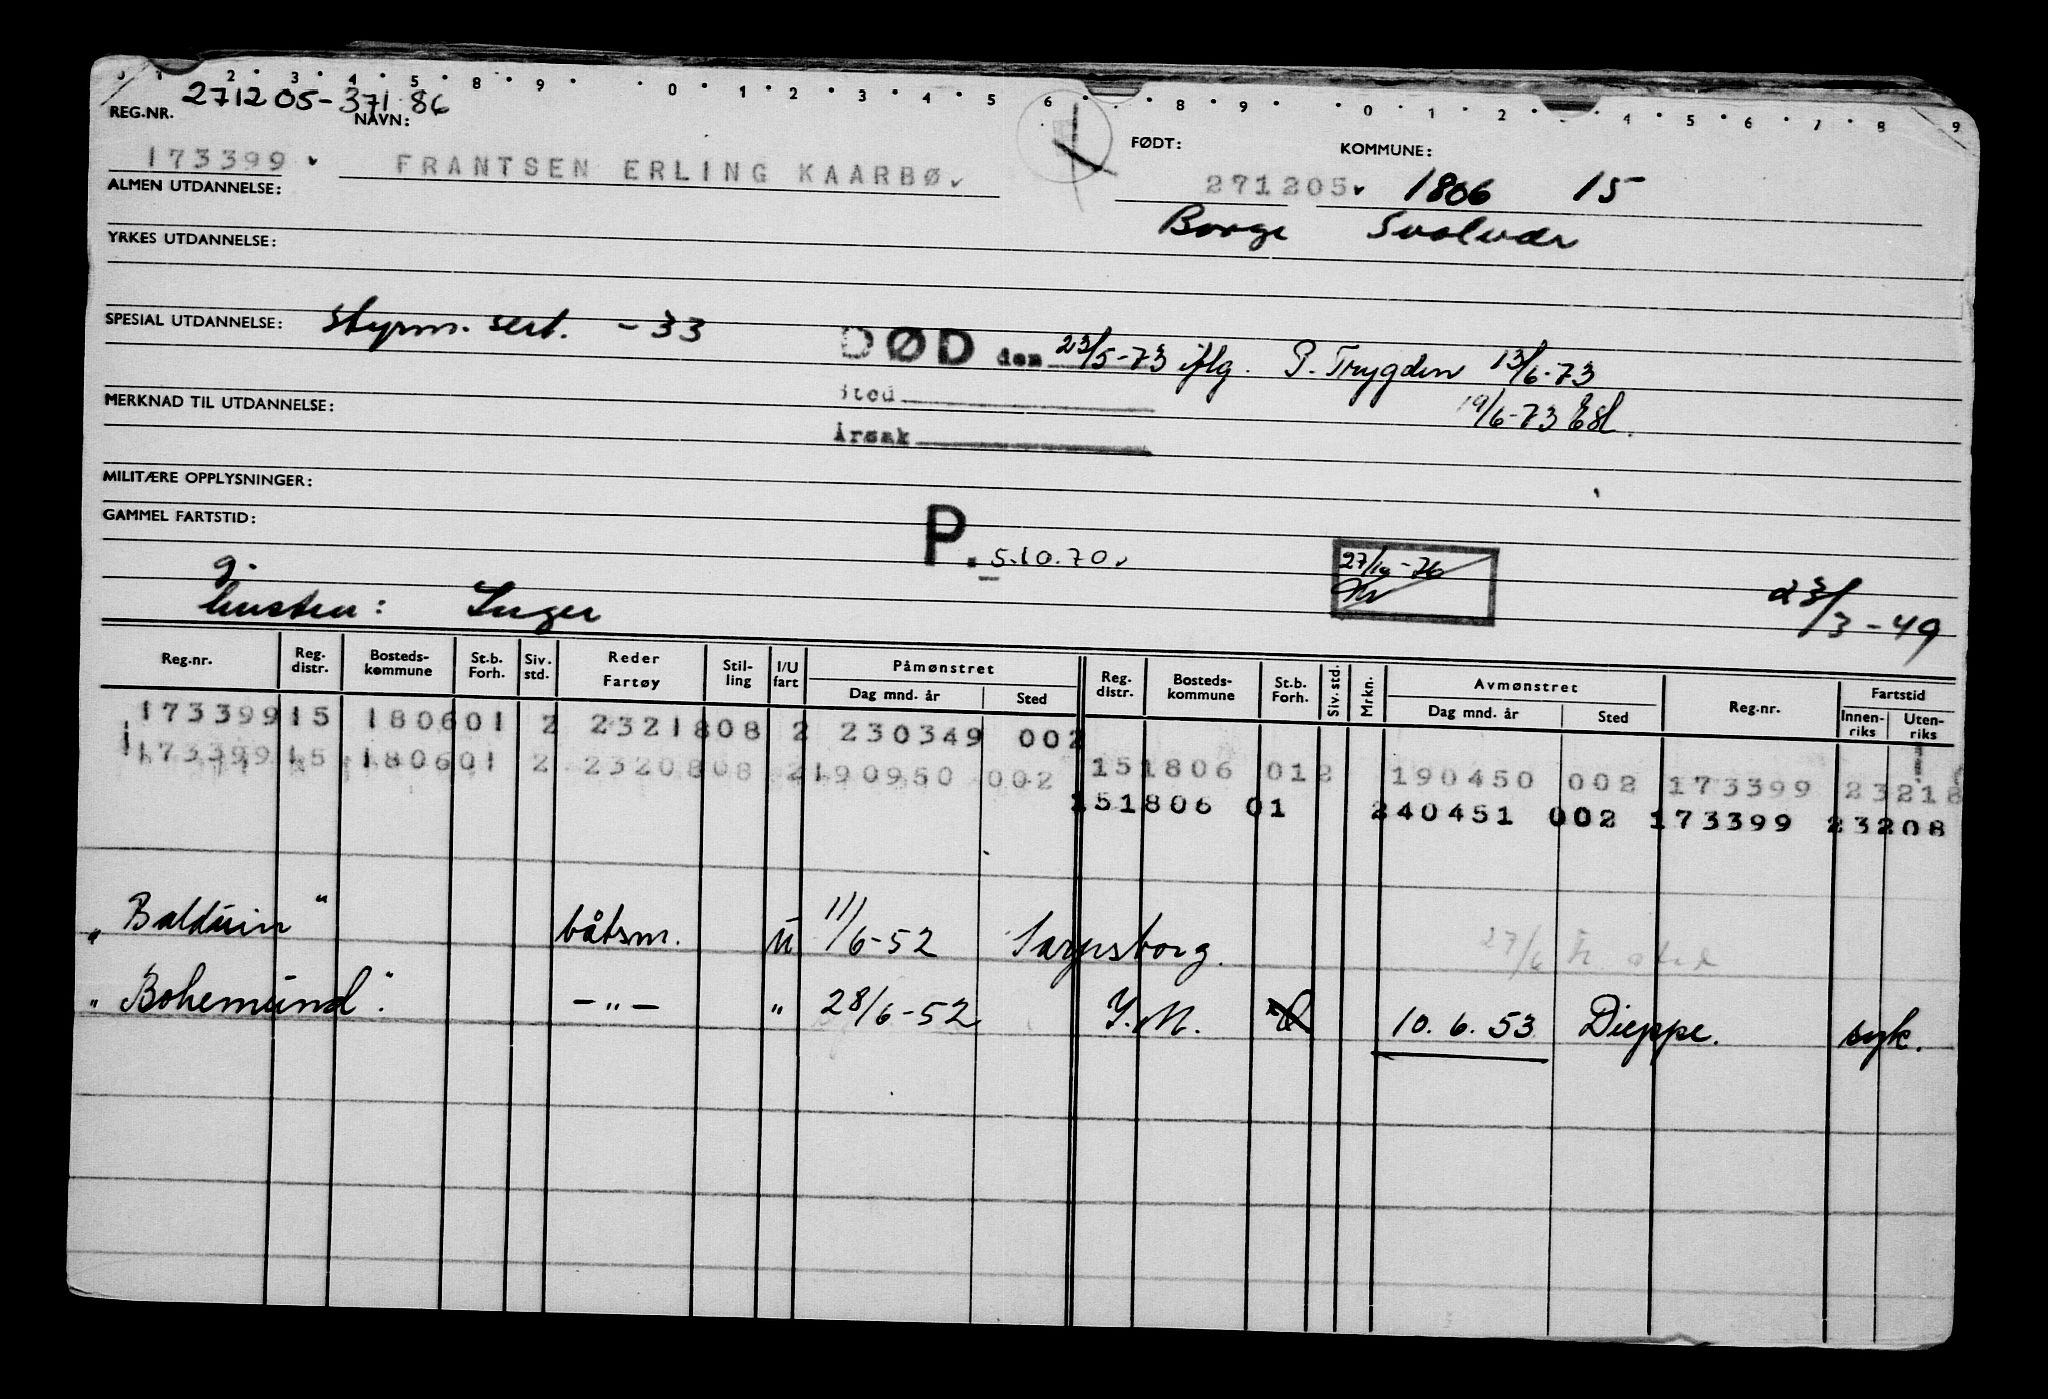 0 1 2 3 4 5 8 9 0 1 2 3 4 5 6 8 9 0 1 2 4 5 6 7 8 9
271205-371 86
REG.NR. NAVN: FØDT: KOMMUNE:
173399 FRANTSEN ERLING KAARBØ 271205 1806 15
ALMEN UTDANNELSE: Borge Svolvær
YRKES UTDANNELSE:
SPESIAL UTDANNELSE: styrm. sert. -33
DØD den 23/5-73 iflg. P. Trygden 13/6-73
Sted
MERKNAD TIL UTDANNELSE: 19/6-73 Esl.
Årsak
MILITÆRE OPPLYSNINGER:
GAMMEL FARTSTID:
P. 5.10.70.
27/10-76
g.
hustru: Inger
23/3-49
Reg.nr. Reg. distr. Bosteds-kommune St.b. Forh. Siv. std. Reder Fartøy Stil-ling I/U fart Påmønstret Dag mnd. år Sted Reg. distr. Bosteds-kommune St.b. Forh. Siv. std. Mrkn. Avmønstret Dag mnd. år Sted Reg.nr. Fartstid Innen-riks Uten-riks
173399 15 1806 01 2 2321808 2 230349 002
173399 15 1806 01 2 2320808 2 190950 002 15 1806 01 2 190450 002 173399 23218
15 1806 01 240451 002 173399 23208
"Balduin" båtsm. u 11/6-52 Sarpsborg. 27/6
"Bohemund". -"- " 28/6-52 Y.M. 10.6.53 Dieppe. syk.